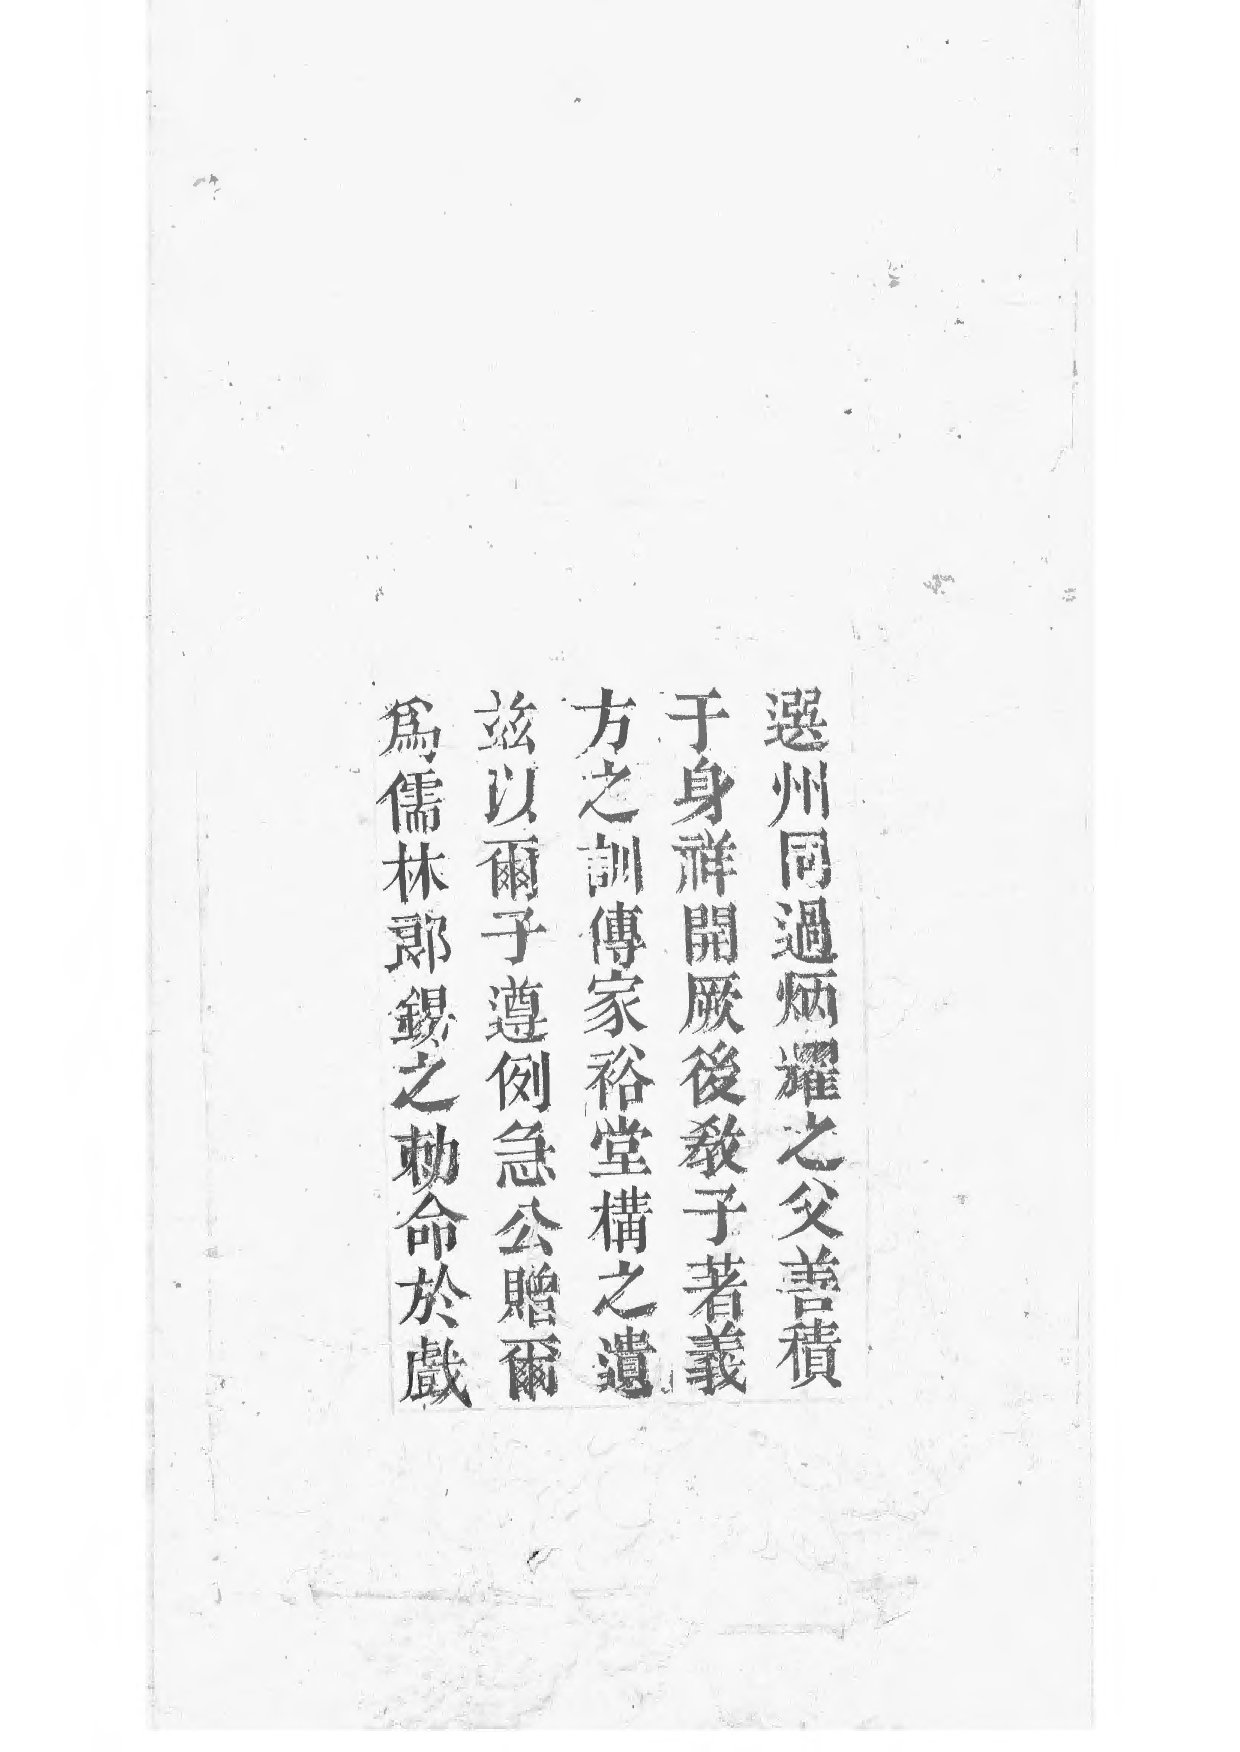 選州同過炳耀之父善積
于身祥開厥後教子著義
方之訓傳家裕堂構之遺
兹以爾子遵例急公贈爾
爲儒林郎錫之勅命於戲